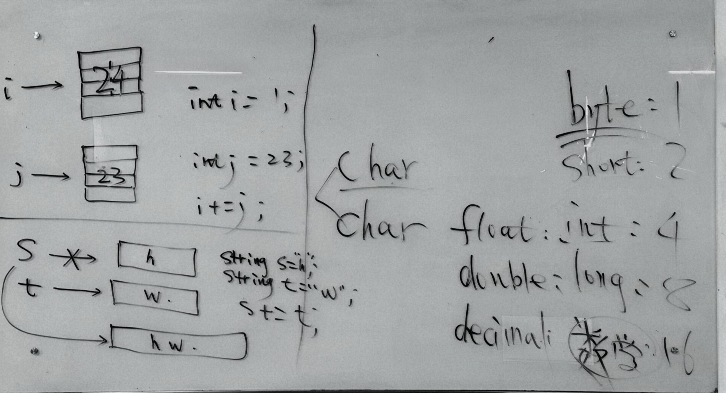 i → 24
int i = 1;
j → 23
int j = 23;
i += j;
S → h
t → w.
h w.
string s="h";
string t="w";
s += t;
Char
Char
byte: 1
short: 2
float: int: 4
double: long: 8
decimal: 16